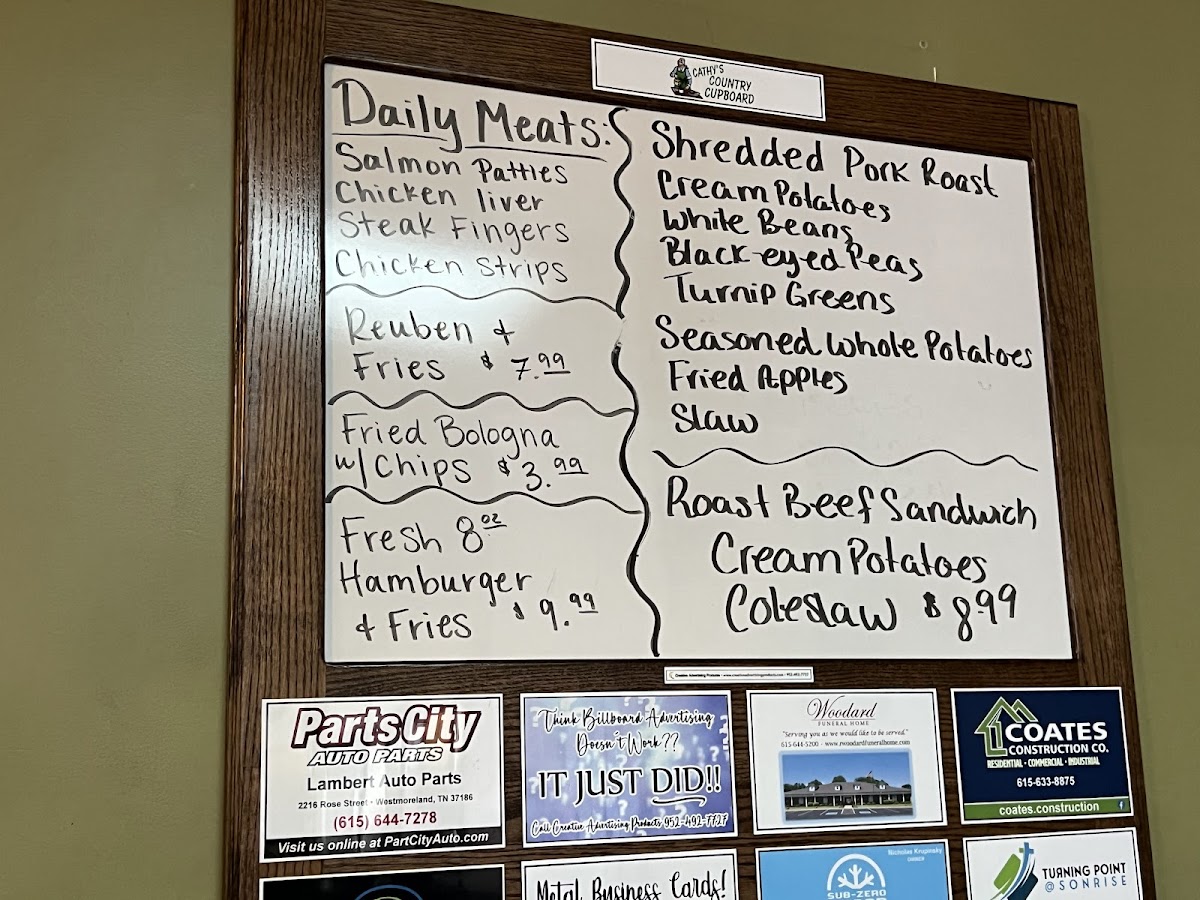 CATHY'S
COUNTRY
CUPBOARD
Daily Meats:
Salmon Patties
Chicken liver
Steak Fingers
Chicken Strips
Reuben &
Fries $7.99
Fried Bologna
w/Chips $3.99
Fresh 8oz
Hamburger
& Fries $9.99
Shredded Pork Roast
Cream Potatoes
White Beans
Black-eyed Peas
Turnip Greens
Seasoned Whole Potatoes
Fried Apples
Slaw
Roast Beef Sandwich
Cream Potatoes
Coleslaw $8.99
Parts City
AUTO PARTS
Lambert Auto Parts
2216 Rose Street • Westmoreland, TN 37186
(615) 644-7278
Visit us online at PartCityAuto.com
Think Billboard Advertising
Doesn't Work??
IT JUST DID!!
Call Creative Advertising Products 952-492-7727
Woodard
FUNERAL HOME
"Serving you as we would like to be served."
615-644-5200 - www.rwoodardfuneralhome.com
COATES
CONSTRUCTION CO.
RESIDENTIAL • COMMERCIAL • INDUSTRIAL
615-633-8875
coates.construction
Metal Business Cards!
Nicholas Krupinsky
OWNER
SUB-ZERO
TURNING POINT
@SONRISE